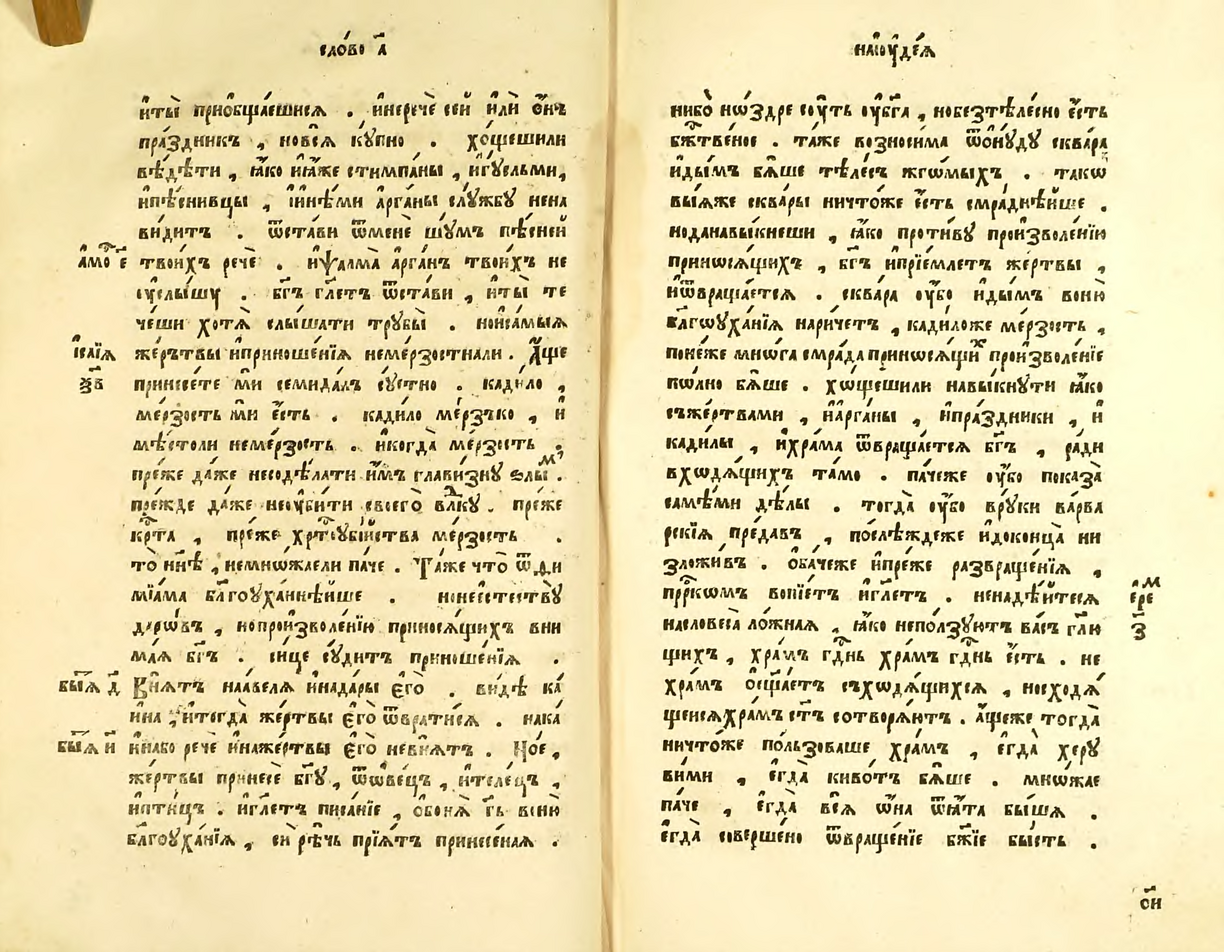 сло́во а҃
и҆ты̀ прио҆бщае́шисѧ . и҆нерече̑ се́й и҆лѝ ѻ҆́нъ
пра́здникъ , но всѧ̑ кꙋ́пно . хо́щешили
вѣ́дѣти , ꙗ҆́ко и҆ꙗ҆́же стимпа́ны , и҆гꙋ́сльми ,
и҆пѣ́снивцы , и҆и҆нѣ́ми а҆рга́ны слꙋ́жбꙋ нена
ви́дитъ . ѿста́ви ѿменѐ шꙋ́мъ пѣ́сней
а҆мо́с є҃
твои́хъ рече̑ . и҆ѱалма̀ а҆рга́нъ твои́хъ не
ѹ҆слы́шꙋ . бг҃ъ гл҃етъ ѿста́ви , и҆ты̀ те
че́ши хотѧ̀ слы́шати трꙋбы̀ . нои҆са́мыѧ
и҆са́їѧ
же́ртвы и҆приноше́нїѧ неме́рзостнали . А҆́ще
ѯ҃в
принесе́те мѝ семида́лъ сꙋ́етно . кади́ло ,
ме́рзость мѝ є҆́сть . кади́ло ме́рзъко , и҆
мѣ́столи неме́рзость . и҆когда̀ ме́рзость .
пре́же да́же несодѣ́лати и҆̀мъ главизнꙋ̀ ѕлы́м .
пре́жде да́же неѹ҆би́ти своего̀ вл҃дкꙋ . пре́же
крⷭ҇та̀ , пре́же хрⷭ҇тоꙋбі́йства ме́рзость .
то̀ нн҃ѣ , немно́жаели па́че . Та́же что̀ ѿѳи
мїа́ма бл҃гоꙋха́ннѣйше . нонеестествꙋ̀
даро́въ , нопроизволе́нїю приносѧ́щихъ вни
ма́ѧ бг҃ъ . си́це сꙋ́дитъ приноше́нїѧ .
бы҃тїѧ д҃
Внѧ́тъ наа҆́велѧ и҆нада́ры є҆го̀ . ви́дѣ ка́
ина , и҆тогда̀ же́ртвы є҆го̀ ѿврати́сѧ . нака́
бы҃тїѧ и҃
и҆на́бо рече̑ и҆наже́ртвы є҆го̀ невнѧ́тъ . Но́е ,
же́ртвы принесѐ бг҃ꙋ , ѿѻ҆ве́цъ , и҆теле́цъ ,
и҆пти́цъ . и҆гл҃етъ писа́нїе , ѻ҆бонѧ̀ гь҃ воню̀
бл҃гоꙋха́нїѧ , сѝ рѣ́чь прїѧ́тъ принесе́наѧ .
наиꙋде́ѧ
нибо̀ но́здре сꙋ́ть ѹ҆́бг҃а , нобезтѣле́сно є҆́сть
бж҃твеное . та́же возноси́ма ѿѻ҆нꙋ́дꙋ сквара̀
и҆ды́мъ бѧ́ше тѣле́съ жго́мыхъ . та́кѡ
выѧ́же сква́ры ничто́же є҆́сть смраднѣ́йше .
ноданавы́кнеши , ꙗ҆́ко проти́вꙋ произволе́нїю
приносѧ́щихъ , бг҃ъ и҆прїе́млетъ же́ртвы ,
и҆ѿвраща́етсѧ . сквара̀ ѹ҆́бо и҆ды́мъ воню̀
бл҃гѡꙋха́нїѧ нарече́тъ , кади́ложе ме́рзость ,
поне́же мно́га смра́да приносѧ́щих произволе́нїе
по́лно бѧ́ше . хѡ́щешили навы́кнꙋти ꙗ҆́ко
съже́ртвами , и҆а҆рга́ны , и҆пра́здники , и҆
кади́лы , и҆хра́ма ѿвраща́етсѧ бг҃ъ , ра́ди
вхѡдѧ́щихъ та́мо . па́чеже ѹ҆́бо показа̀
самѣ́ми дѣ́лы . тогда̀ ѹ҆́бо врꙋ́ки ва́рва
рскїѧ преда́въ , послѣ́ждеже и҆доконца̀ ни
зложи́въ . ѻ҆ба́чеже и҆пре́же развраще́нїѧ ,
пррⷪ҇комъ вопїе́тъ и҆гл҃етъ . ненадѣ́йтесѧ
і҆ере́м
насловеса̀ ло́жнаѧ , ꙗ҆́ко непо́лзꙋютъ ва́съ гл҃ю
з҃
щихъ , хра́мъ гдⷭ҇нь хра́мъ гдⷭ҇нь є҆́сть . не
хра́мъ ѻ҆сщ҃а́етъ съхѡдѧ́щихсѧ , носходѧ́
щеисѧхра́мъ ст҃ъ сотворѧ́ютъ . а҆́щеже тогда̀
ничто́же по́льзоваше хра́мъ , є҆гда̀ херꙋ
ви́ми , є҆гда̀ киво́тъ бѧ́ше . мно́жае
па́че , є҆гда̀ всѧ̑ ѡ҆́на ѿѧ́та бы́шѧ .
є҆гда̀ соверше́но ѿвраще́нїе бж҃їе бы́сть .
сн҃и